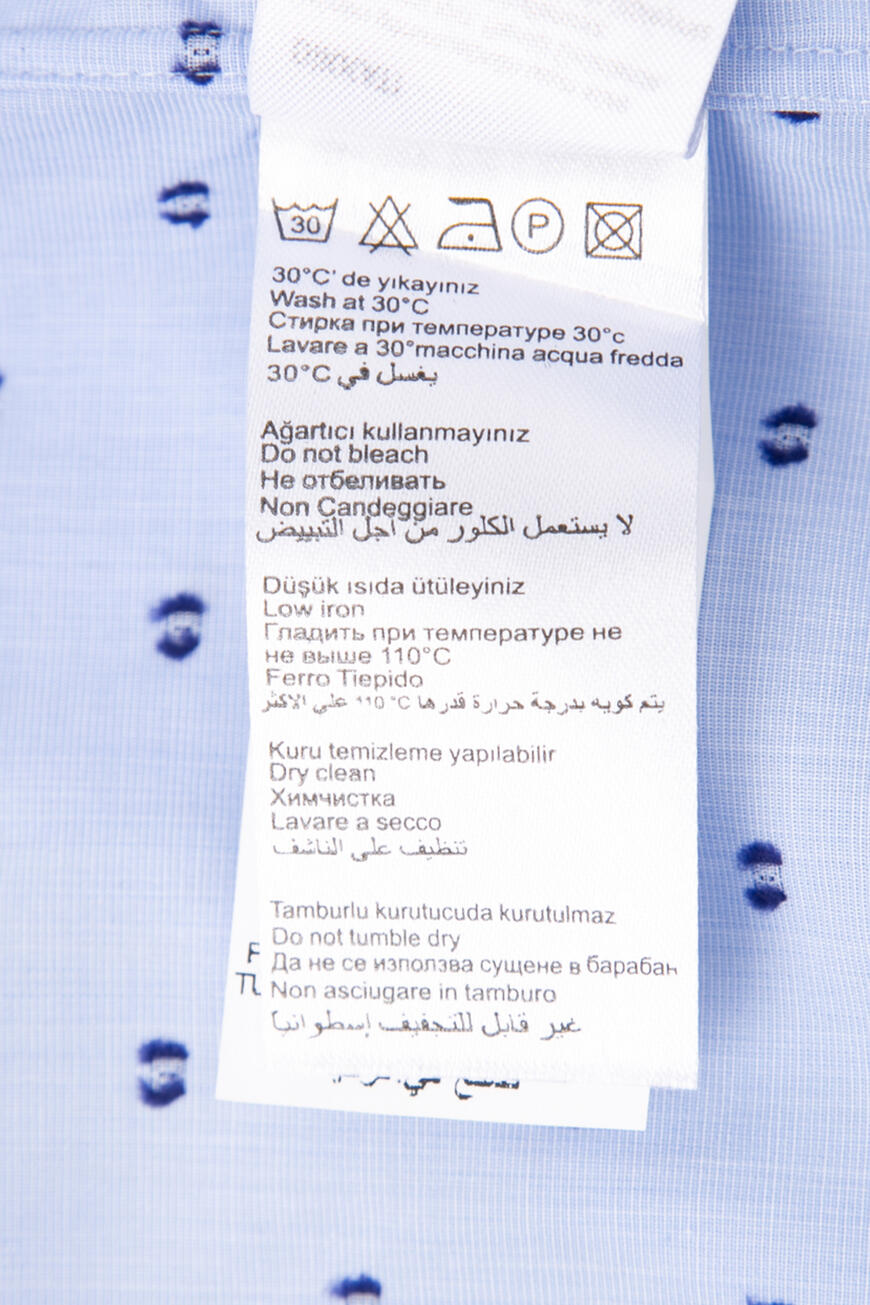 30
P
30°C' de yıkayınız
Wash at 30°C
Стирка при температуре 30°c
Lavare a 30°macchina acqua fredda
يغسل في 30°C
Ağartıcı kullanmayınız
Do not bleach
Не отбеливать
Non Candeggiare
لا يستعمل الكلور من أجل التبييض
Düşük ısıda ütüleyiniz
Low iron
Гладить при температуре не
не выше 110°C
Ferro Tiepido
يتم كويه بدرجة حرارة قدرها 110 °C على الاكثر
Kuru temizleme yapılabilir
Dry clean
Химчистка
Lavare a secco
تنظيف على الناشف
Tamburlu kurutucuda kurutulmaz
Do not tumble dry
Да не се използва сущене в барабан
Non asciugare in tamburo
غير قابل للتجفيف إسطوانيا